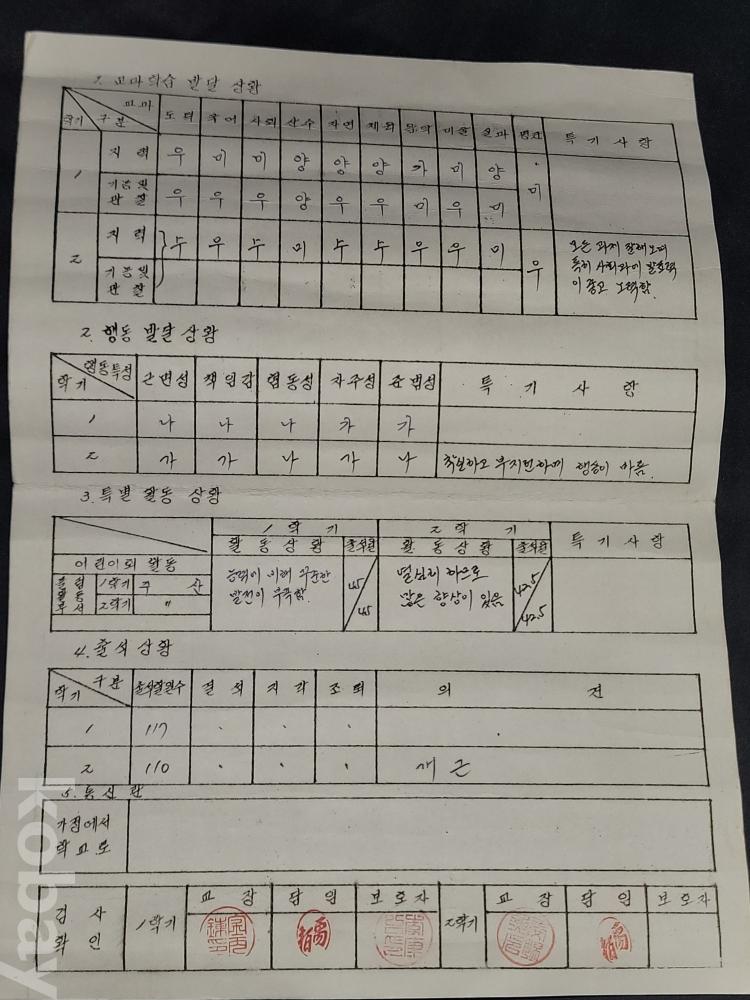 1. 교과학습 발달 상황
학기 구분 교과 도덕 국어 사회 산수 자연 체육 음악 미술 실과 평균 특기사항
1 지력 우 미 미 양 양 양 가 미 양 미
기능및 관찰 우 우 우 양 우 우 미 우 미
2 지력 수 우 수 미 수 수 우 우 미 우
기능및 관찰
모든 과제 잘해오며
특히 사회과에 발표력
이 좋고 노력함.
2. 행동 발달 상황
학기 행동특성 근면성 책임감 협동성 자주성 준법성 특기사항
1 나 나 나 가 가
2 가 가 나 가 나 착실하고 부지런하며 행동이 바름.
3. 특별 활동 상황
1 학 기 2 학 기 특기사항
활동상황 출석란 활동상황 출석란
어린이회 활동
1학기 주 산
2학기 "
능력에 비해 꾸준한
발전이 부족함.
45/45
열심히 하므로
많은 향상이 있음
42.5/42.5
4. 출석 상황
학기 구분 출석할일수 결석 지각 조퇴 의 견
1 117 . . .
2 110 . . . 개근
5. 통신란
가정에서
학교로
검사
확인
1학기 교장 담임 보호자 2학기 교장 담임 보호자
kobay